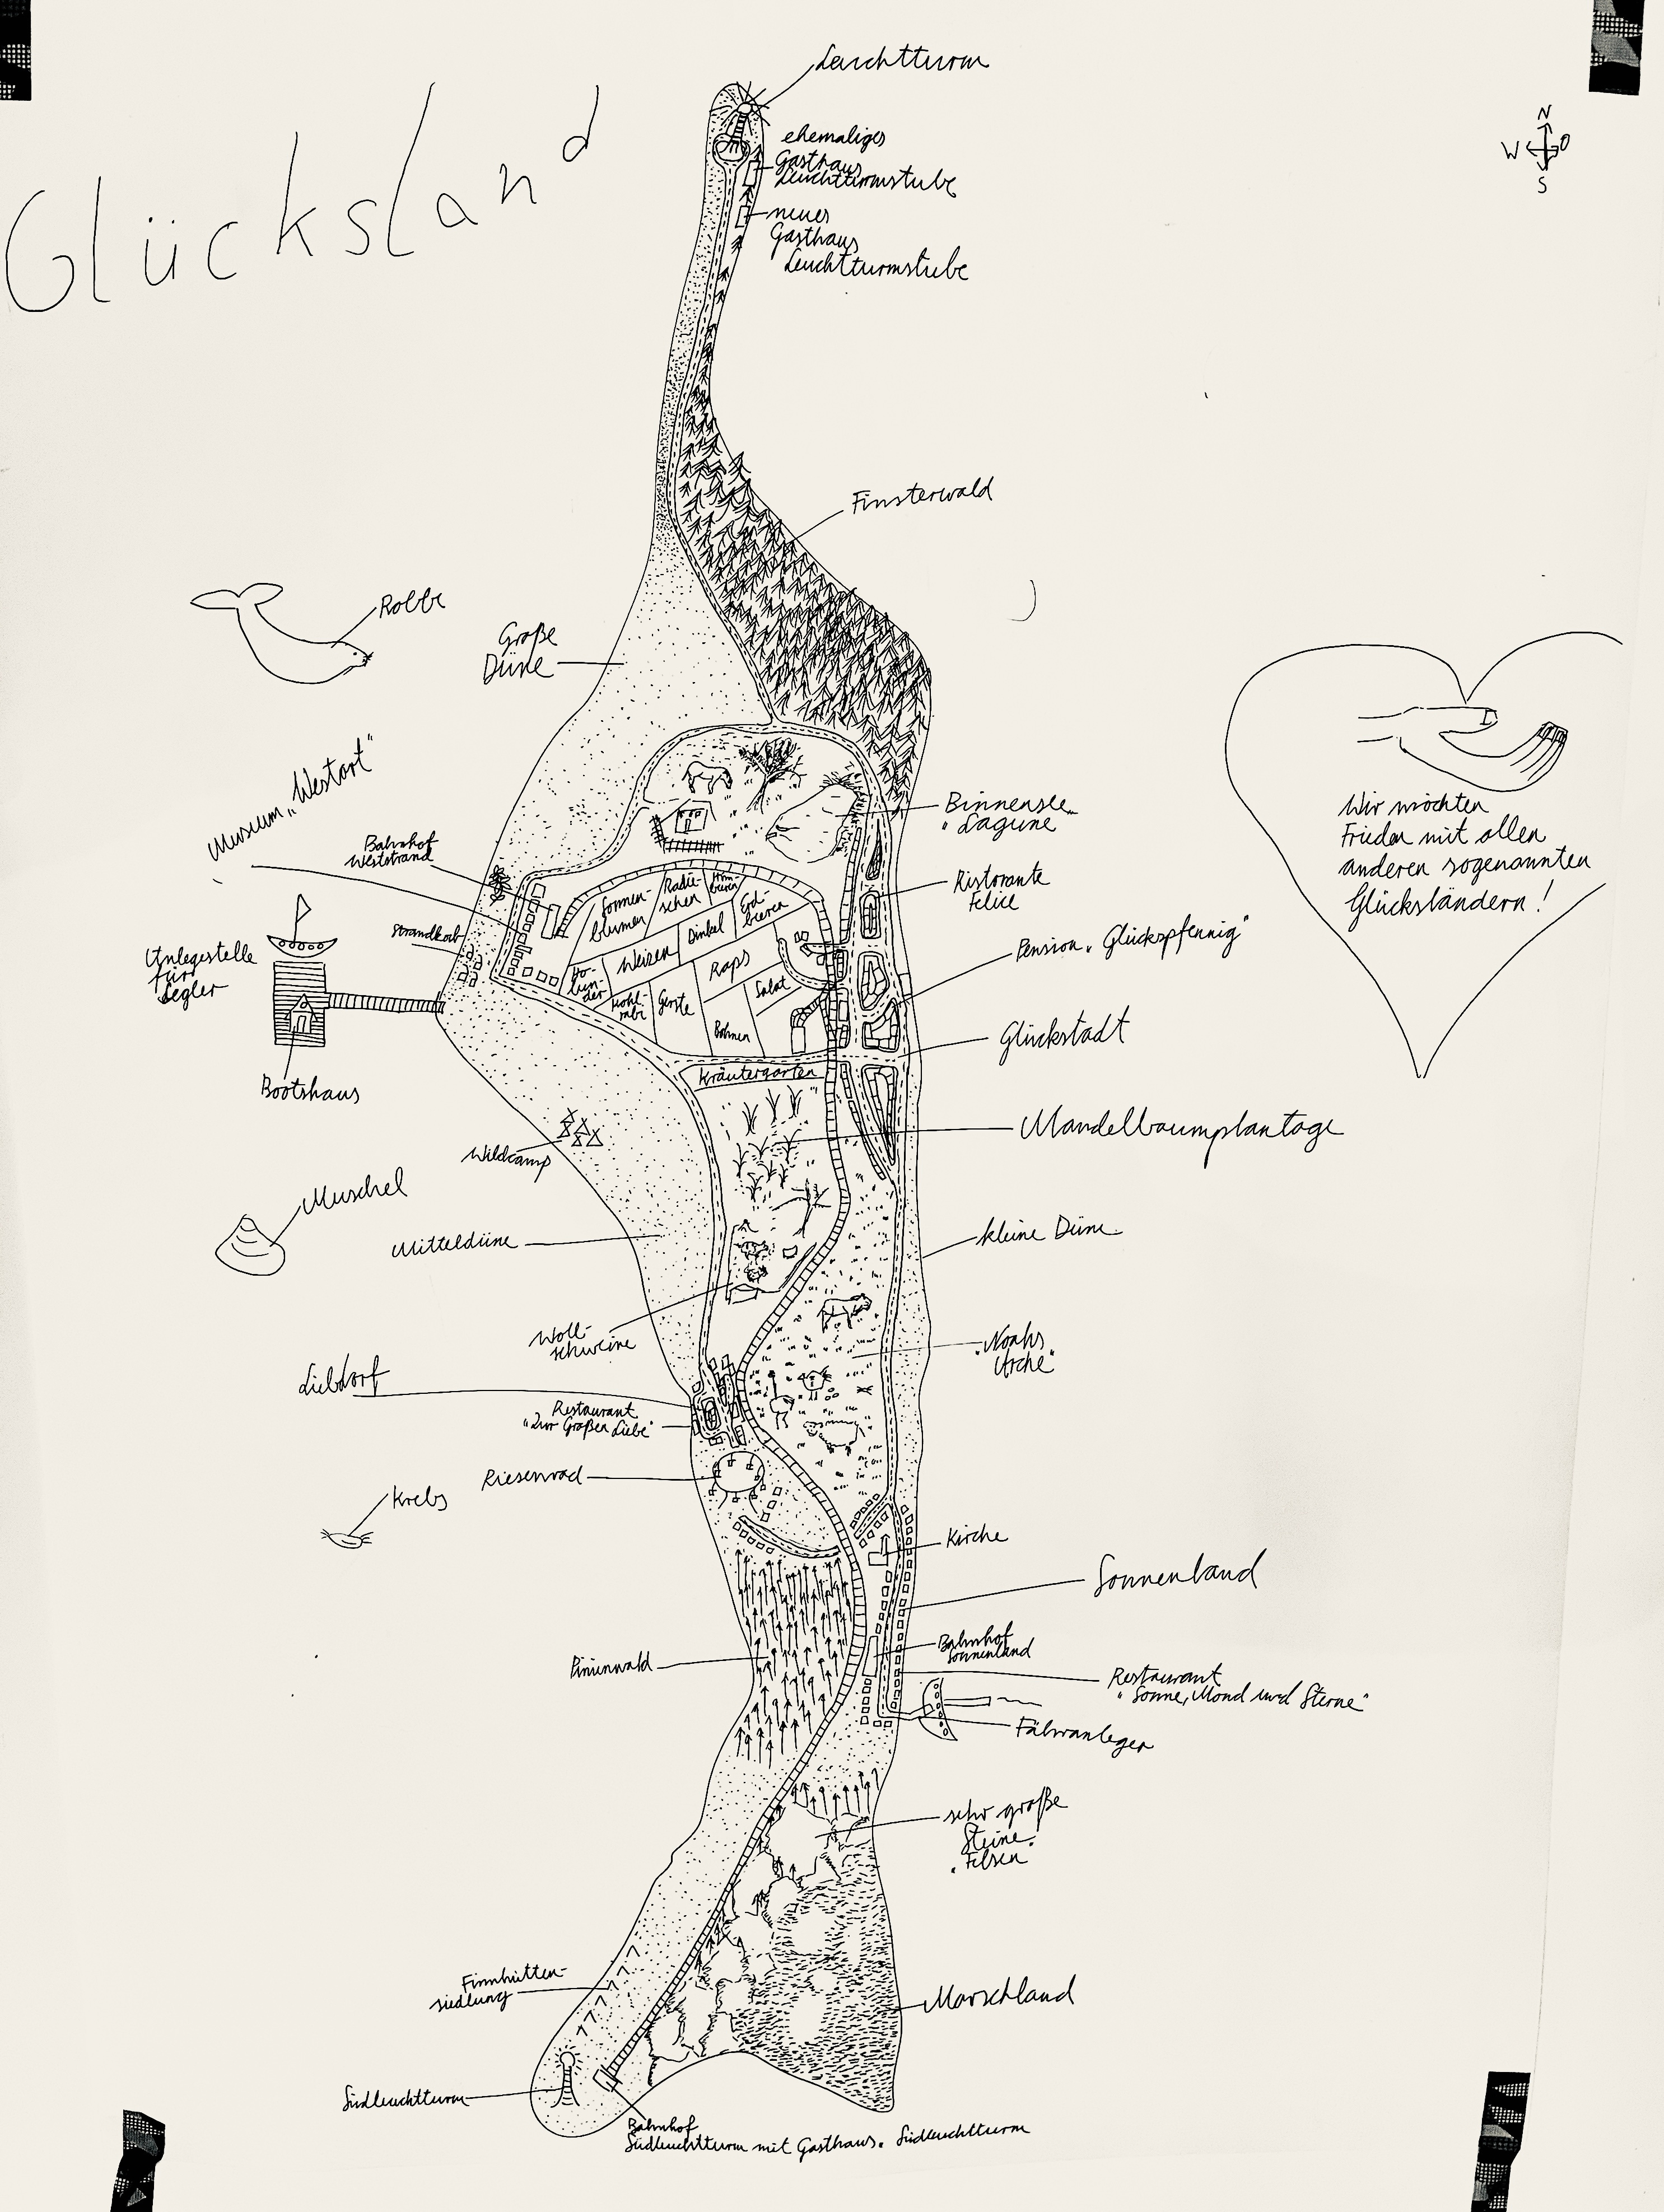 Glücksland
Leuchtturm
ehemaliges
Gasthaus
Leuchtturmstube
neues
Gasthaus
Leuchtturmstube
N
W O
S
Finsterwald
Robbe
Große
Düne
Wir möchten
Frieden mit allen
anderen sogenannten
Glücksländern!
Museum „Westort"
Bahnhof
Weststrand
Binnensee
"Lagune"
Ristorante
Felice
Pension „Glückspfennig"
Strandkorb
Anlegestelle
für
Segler
Bootshaus
Sonnen-
blumen
Radie-
schen
Him-
beeren
Erd-
beeren
Dinkel
Weizen
Raps
Salat
Ho-
lun-
der
Kohl-
rabi
Gerste
Bohnen
Glückstadt
Kräutergarten
Mandelbaumplantage
Wildcamp
Muschel
Mitteldüne
kleine Düne
Woll-
schweine
"Noahs
Arche"
Liebdorf
Restaurant
"Zur Großen Liebe"
Riesenrad
Krebs
Kirche
Sonnenland
Bahnhof
Sonnenland
Pinienwald
Restaurant
"Sonne, Mond und Sterne"
Fähranleger
sehr große
Steine
"Felsen"
Finnhütten-
siedlung
Marschland
Südleuchtturm
Bahnhof
Südleuchtturm mit Gasthaus „Südleuchtturm